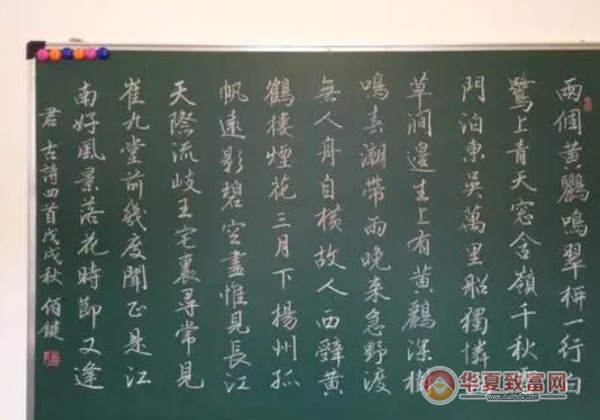 兩個黃鸝鳴翠柳一行白
鷺上青天窓含嶺千秋
門泊東吳萬里船獨憐
草澗邊生上有黃鸝深樹
鳴春潮帶雨晚来急野渡
無人舟自橫故人西辭黃
鶴樓煙花三月下揚州孤
帆遠影碧空盡惟見長江
天際流岐王宅裏尋常見
崔九堂前幾度聞正是江
南好風景落花時節又逢
君 古詩四首戊戌秋 佰鍵
华夏致富网